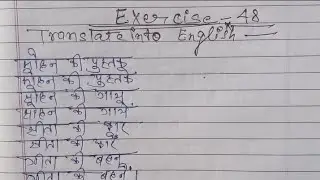 Exercise - 48
Translate into English
मोहन की पुस्तक
मोहन की पुस्तकें
मोहन की गाय
मोहन की गायें
सीता की कार
सीता की कारें
गीता की बहन
गीता की बहनें